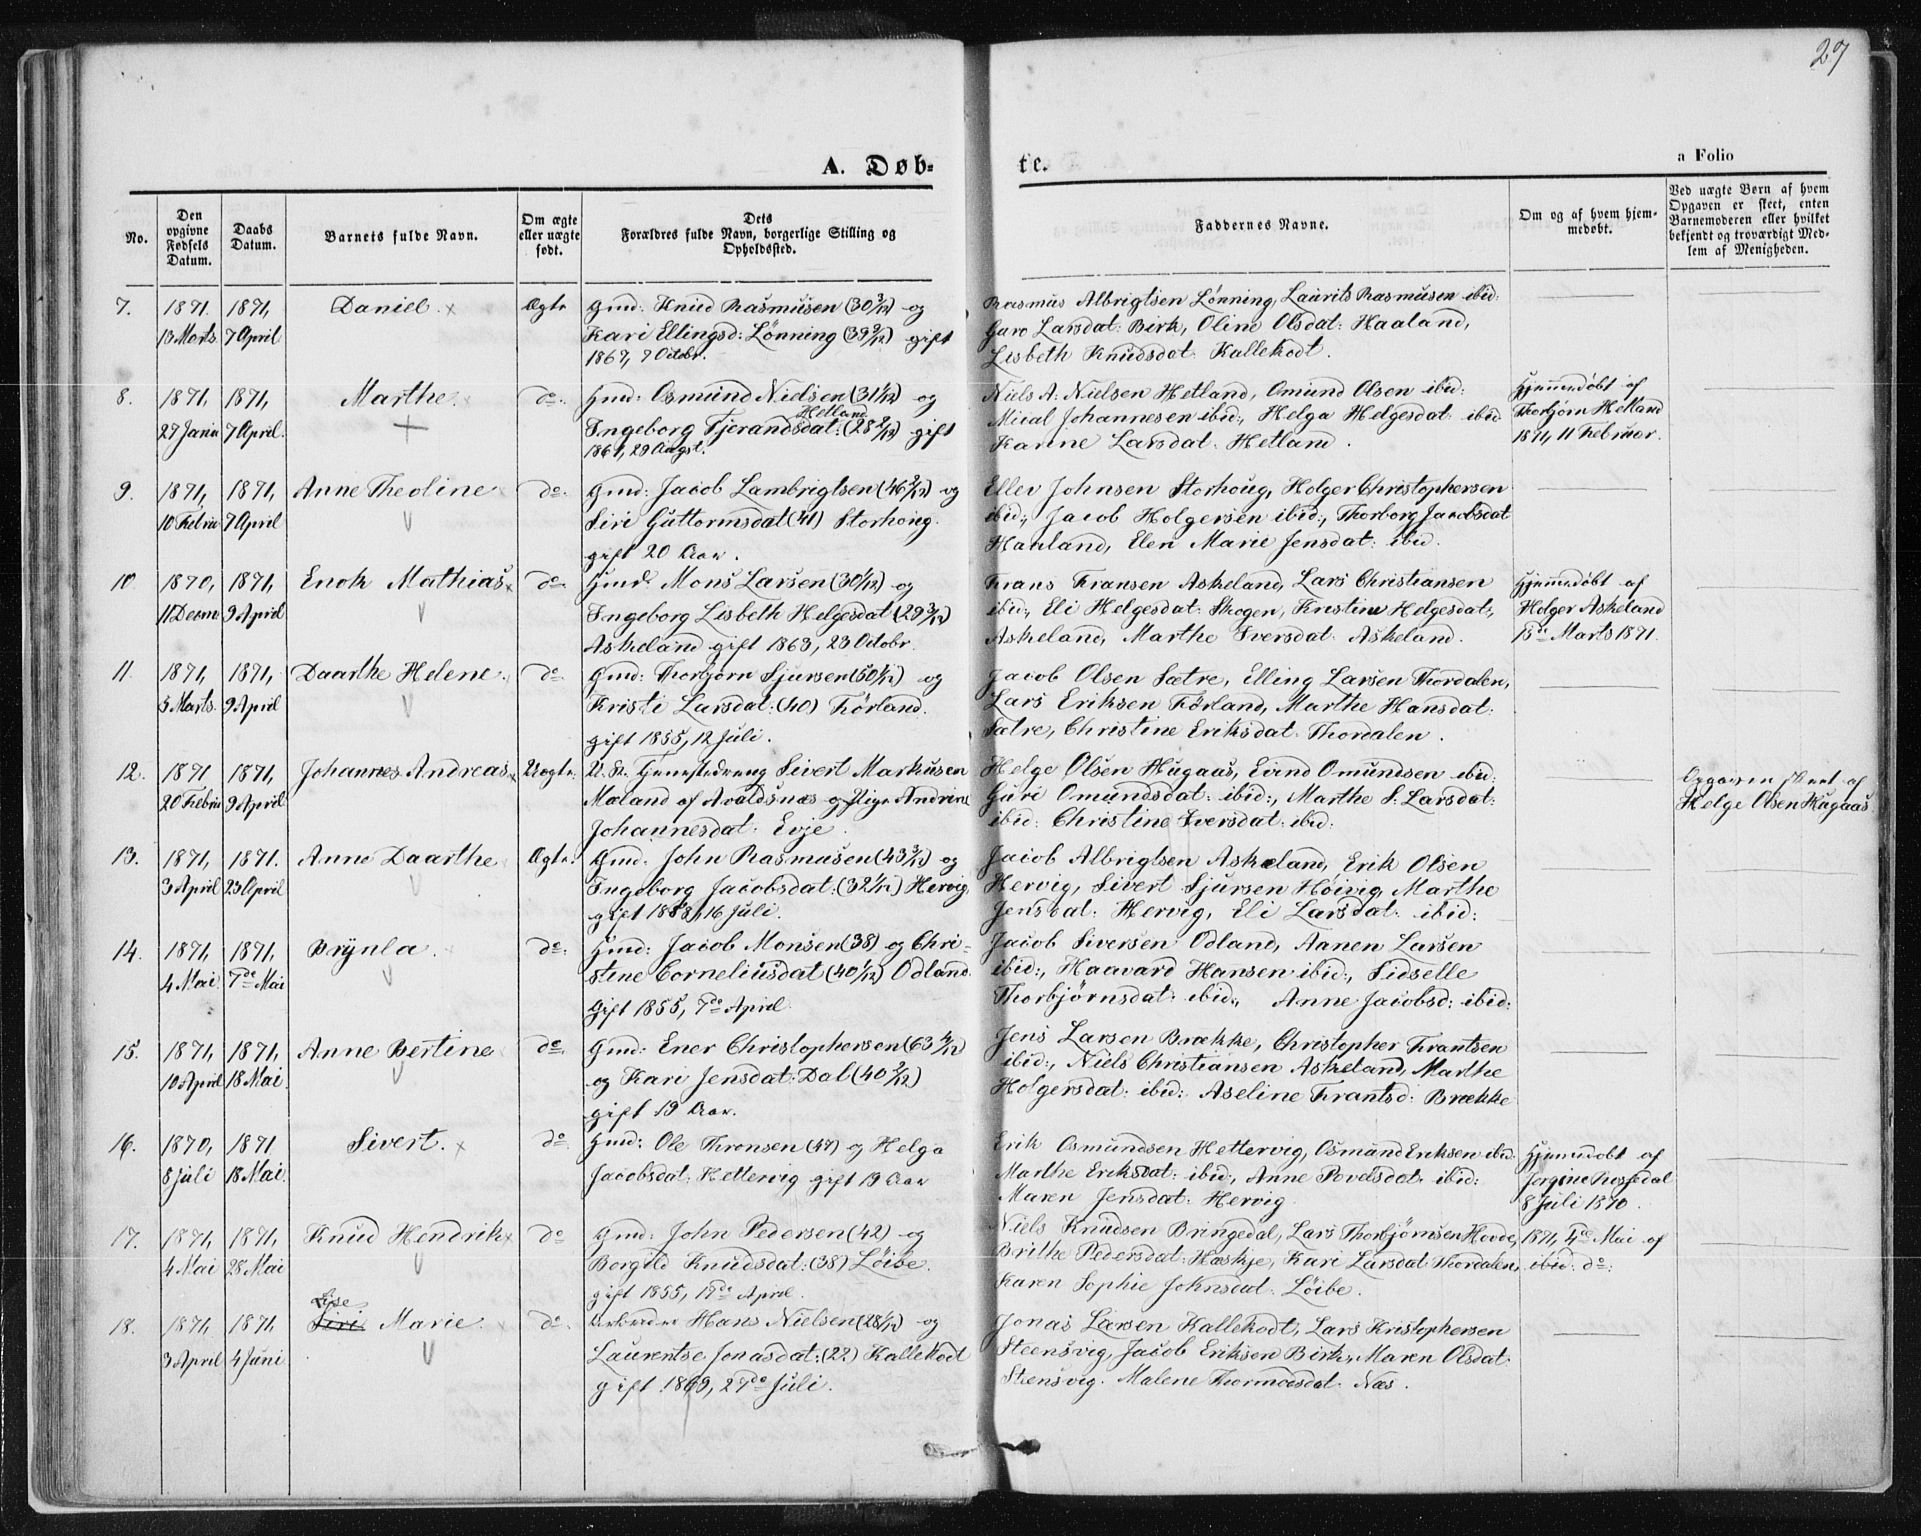 27
A. Døb-
te.
a Folio
No.
Den opgivne Fødsels Datum.
Daabs Datum.
Barnets fulde Navn.
Om ægte eller uægte født.
Dets Forældres fulde Navn, borgerlige Stilling og Opholdssted.
Faddernes Navne.
Om og af hvem hjemmedøbt.
Ved uægte Børn af hvem Opgaven er skeet, enten Barnemoderen eller hvilket bekjendt og troværdigt Medlem af Menigheden.
7. 1871. 1871, Daniel. Ægte Gmd: Knud Rasmusen (30 3/12) og
13 Marts 7 April Kari Ellingsd: Lønning (39 9/12) gift
1867, 7 Octobr.
Rasmus Albrigtsen Lønning, Laurits Rasmusen ibid:
Guro Larsdat: Birk, Oline Olsdat: Haaland,
Lisbeth Knudsdat: Kallekodt.
8. 1871, 1871, Marthe. do. Gmd: Osmund Nielsen (31 1/12) og
Hetland
27 Janu 7 April. Ingeborg Tjerandsdat: (28 9/12) gift
1867, 29 Augst.
Niels A. Nielsen Hetland, Omund Olsen ibid:
Mical Johannesen ibid:, Helga Helgesdat: ibid
Karine Larsdat: Hetland.
Hjemmedøbt af
Thorbjørn Hetland
1871, 11 Februar.
9. 1871, 1871, Anne Theoline do. Gmd: Jacob Lambrigtsen (46 2/12) og
10 Febru 7 April Siri Guttormsdat (41) Storhoug.
gift 20 Aar.
Ellev Johnsen Storhoug, Holger Christophersen
ibid:, Jacob Holgersen ibid:, Thorborg Jacobsdat
Hauland, Elen Marie Jensdat: ibid.
10. 1870, 1871, Enok Mathias do. Gmd: Mons Larsen (30 1/12) og
11 Decmr 9 April Ingeborg Lisbeth Helgesdat (29 3/12)
Askeland gift 1863, 23 Octobr.
Frans Fransen Askeland, Lars Christiansen
ibid:, Eli Helgesdat: Skogen, Kristine Helgesdat:,
Askeland, Marthe Iversdat: Askeland.
Hjemmedøbt af
Holger Askeland
15de Marts 1871.
11. 1871, 1871, Daarthe Helene. do Gmd: Thorbjørn Sjursen (50 1/12) og
5 Marts. 9 April Kristi Larsdat: (40) Førland.
gift 1855, 12 Juli.
Jacob Olsen Sætre, Elling Larsen Thordalen,
Lars Eriksen Førland, Marthe Hansdat:
Sætre, Christine Eriksdat: Thordalen.
12. 1871 1871, Johannes Andreas Uægte. U. St. Tjenestedreng Sivert Markusen
20 Febru 9 April Maland af Avaldsnæs og Pige Andrine
Johannesdat: Evje.
Helge Olsen Hugaas, Eivind Omundsen ibid:
Guri Omundsdat: ibid:, Marthe S. Larsdat:
ibid: Christine Iversdat: ibid:
Opgaven skeet af
Helge Olsen Hugaas
13. 1871, 1871. Anne Daarthe Ægte. Gmd: John Rasmusen (43 3/12) og
3 April 23 April Ingeborg Jacobsdat: (32 1/12) Hervig,
gift 1858, 16 Juli.
Jacob Albrigtsen Askeland, Erik Olsen
Hervig, Sivert Sjursen Høivig, Marthe
Jensdat: Hervig, Eli Larsdat: ibid:
14. 1871, 1871, Brynla. do. Gmd: Jacob Monsen (38) og Chri-
4 Mai 7de Mai stine Corneliusdat (40 1/12) Odland.
Gift 1855, 7de April.
Jacob Siversen Odland, Aanen Larsen
ibid:, Haavard Hansen ibid:, Sidselle
Thorbjørnsdat: ibid:, Anne Jacobsd: ibid:
15. 1871, 1871, Anne Bertine do. Gmd: Ener Christophersen (63 4/12)
10 April 18 Mai. og Kari Jensdat: Dal (40 2/12)
gift 19 Aar.
Jens Larsen Brække, Christopher Frantsen
ibid:, Niels Christiansen Askeland, Marthe
Holgersdat: ibid: Aseline Frantsd: Brække
16. 1870, 1871 Sivert. do Gmd: Ole Thronsen (47) og Helga
8 Juli 18 Mai. Jacobsdat: Hettervig gift 19 Aar
Erik Osmundsen Hettervig, Osmund Eriksen ibid.
Marthe Eriksdat: ibid:, Anne Povelsdat: ibid:
Maren Jensdat: Hervig
Hjemmedøbt af
Jorgine
8 Juli 1870.
17. 1871, 1871, Knud Hendrik do Gmd: John Pedersen (42) og
4 Mai 28 Mai Borgild Knudsdat: (38) Løibe.
gift 1855, 17de April.
Niels Knudsen Bringedal, Lars Thorbjørnsen Hovde,
Brithe Pedersdat: Haskje, Kari Larsdat Thordalen,
Karen Sophie Johnsdat: Løibe.
1871, 4de Mai af
ibid: do:
18. 1871, 1871, Lise Siri Marie. do. Arbeider Hans Nielsen (28 1/12) og
3 April 4 Juni Laurentse Jonasdat: (22) Kallekodt
gift 1869, 27de Juli.
Jonas Larsen Kallekodt, Lars Kristophersen
Steensvig, Jacob Eriksen Birk, Maren Olsdat:
Steensvig. Malene Thormodsdat: Næs.